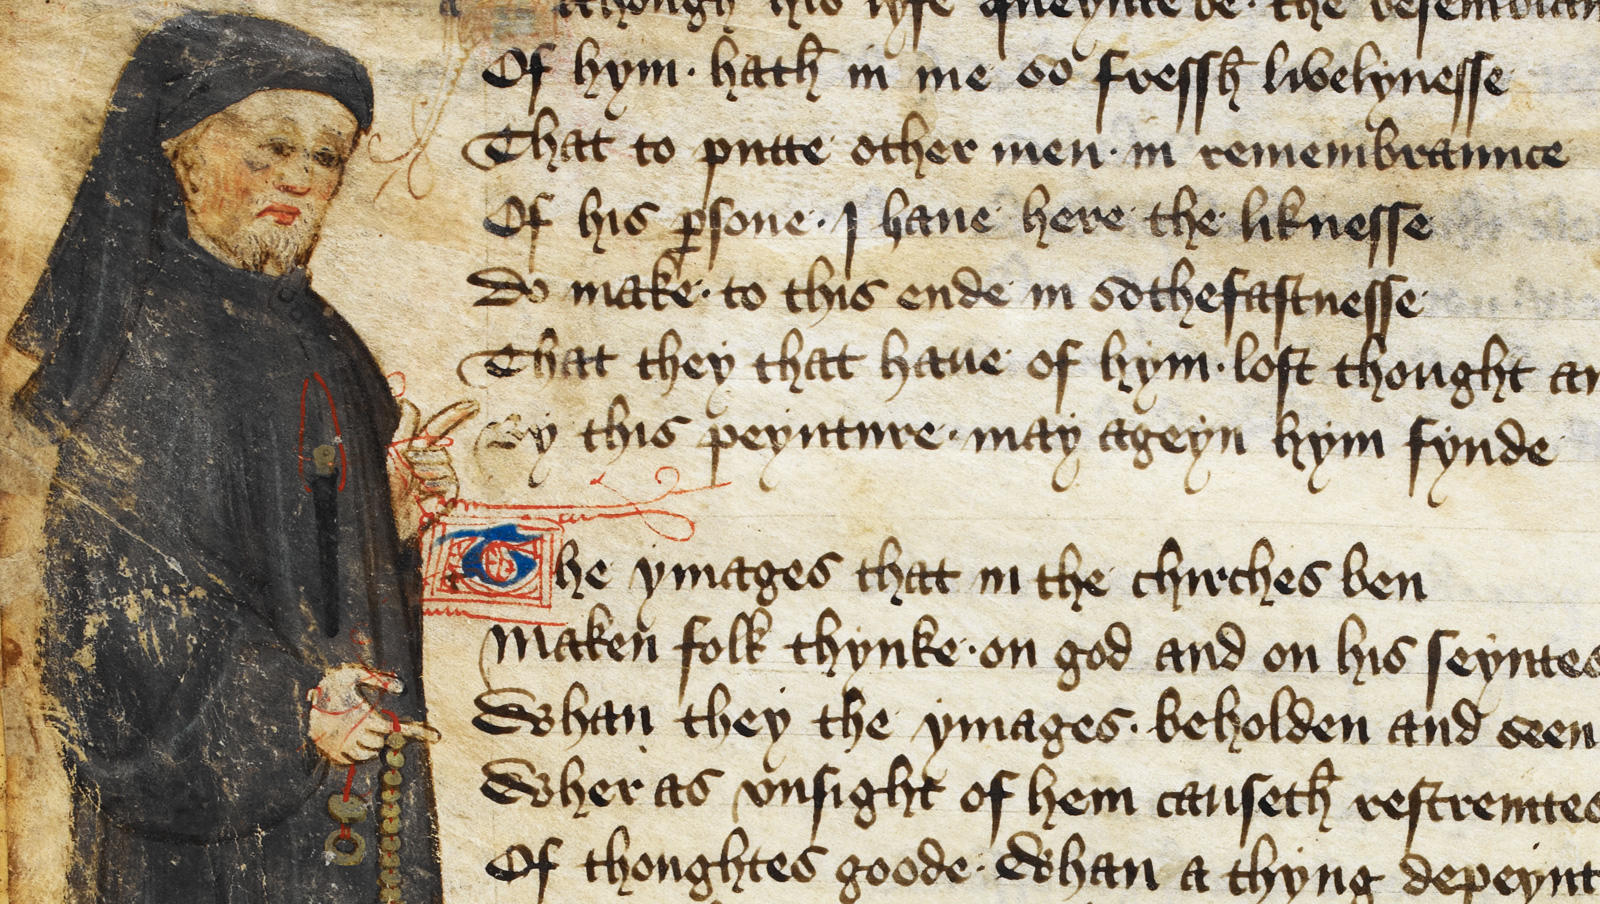 Although his lyfe queynte be. the resemblaun
Of hym. hath in me so fressh lyvelynesse
That to putte other men. in remembraunce
Of his persone. I haue here the liknesse
Do make. to this ende in sothefastnesse
That they that haue of hym. lost thought an
By this peynture. may ageyn hym fynde
The ymages that in the chirches ben
Maken folk thynke. on god and on his seyntes
Whan they the ymages. beholden and seen
Wher as vnsight of hem causeth restreintes
Of thoughtes goode. Whan a thyng depeynt